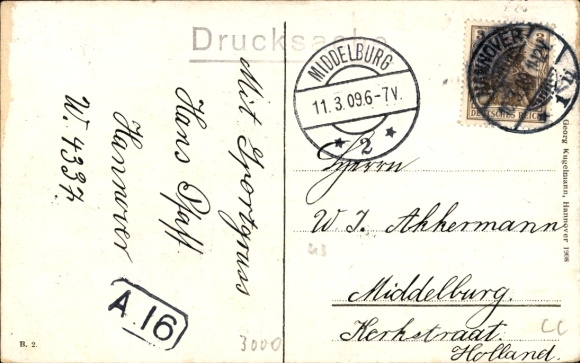 Drucksache
MIDDELBURG
11.3.09.6-7V.
2
HANNOVER
3
2
DEUTSCHES REICH
Mit Sportgruss
Hans Pfaff
Hannover
W. 4337.
A.16
B. 2.
3000
Herrn
W. J. Akkermann
Middelburg.
Kerkstraat.
Holland.
Georg Kugelmann, Hannover 1908